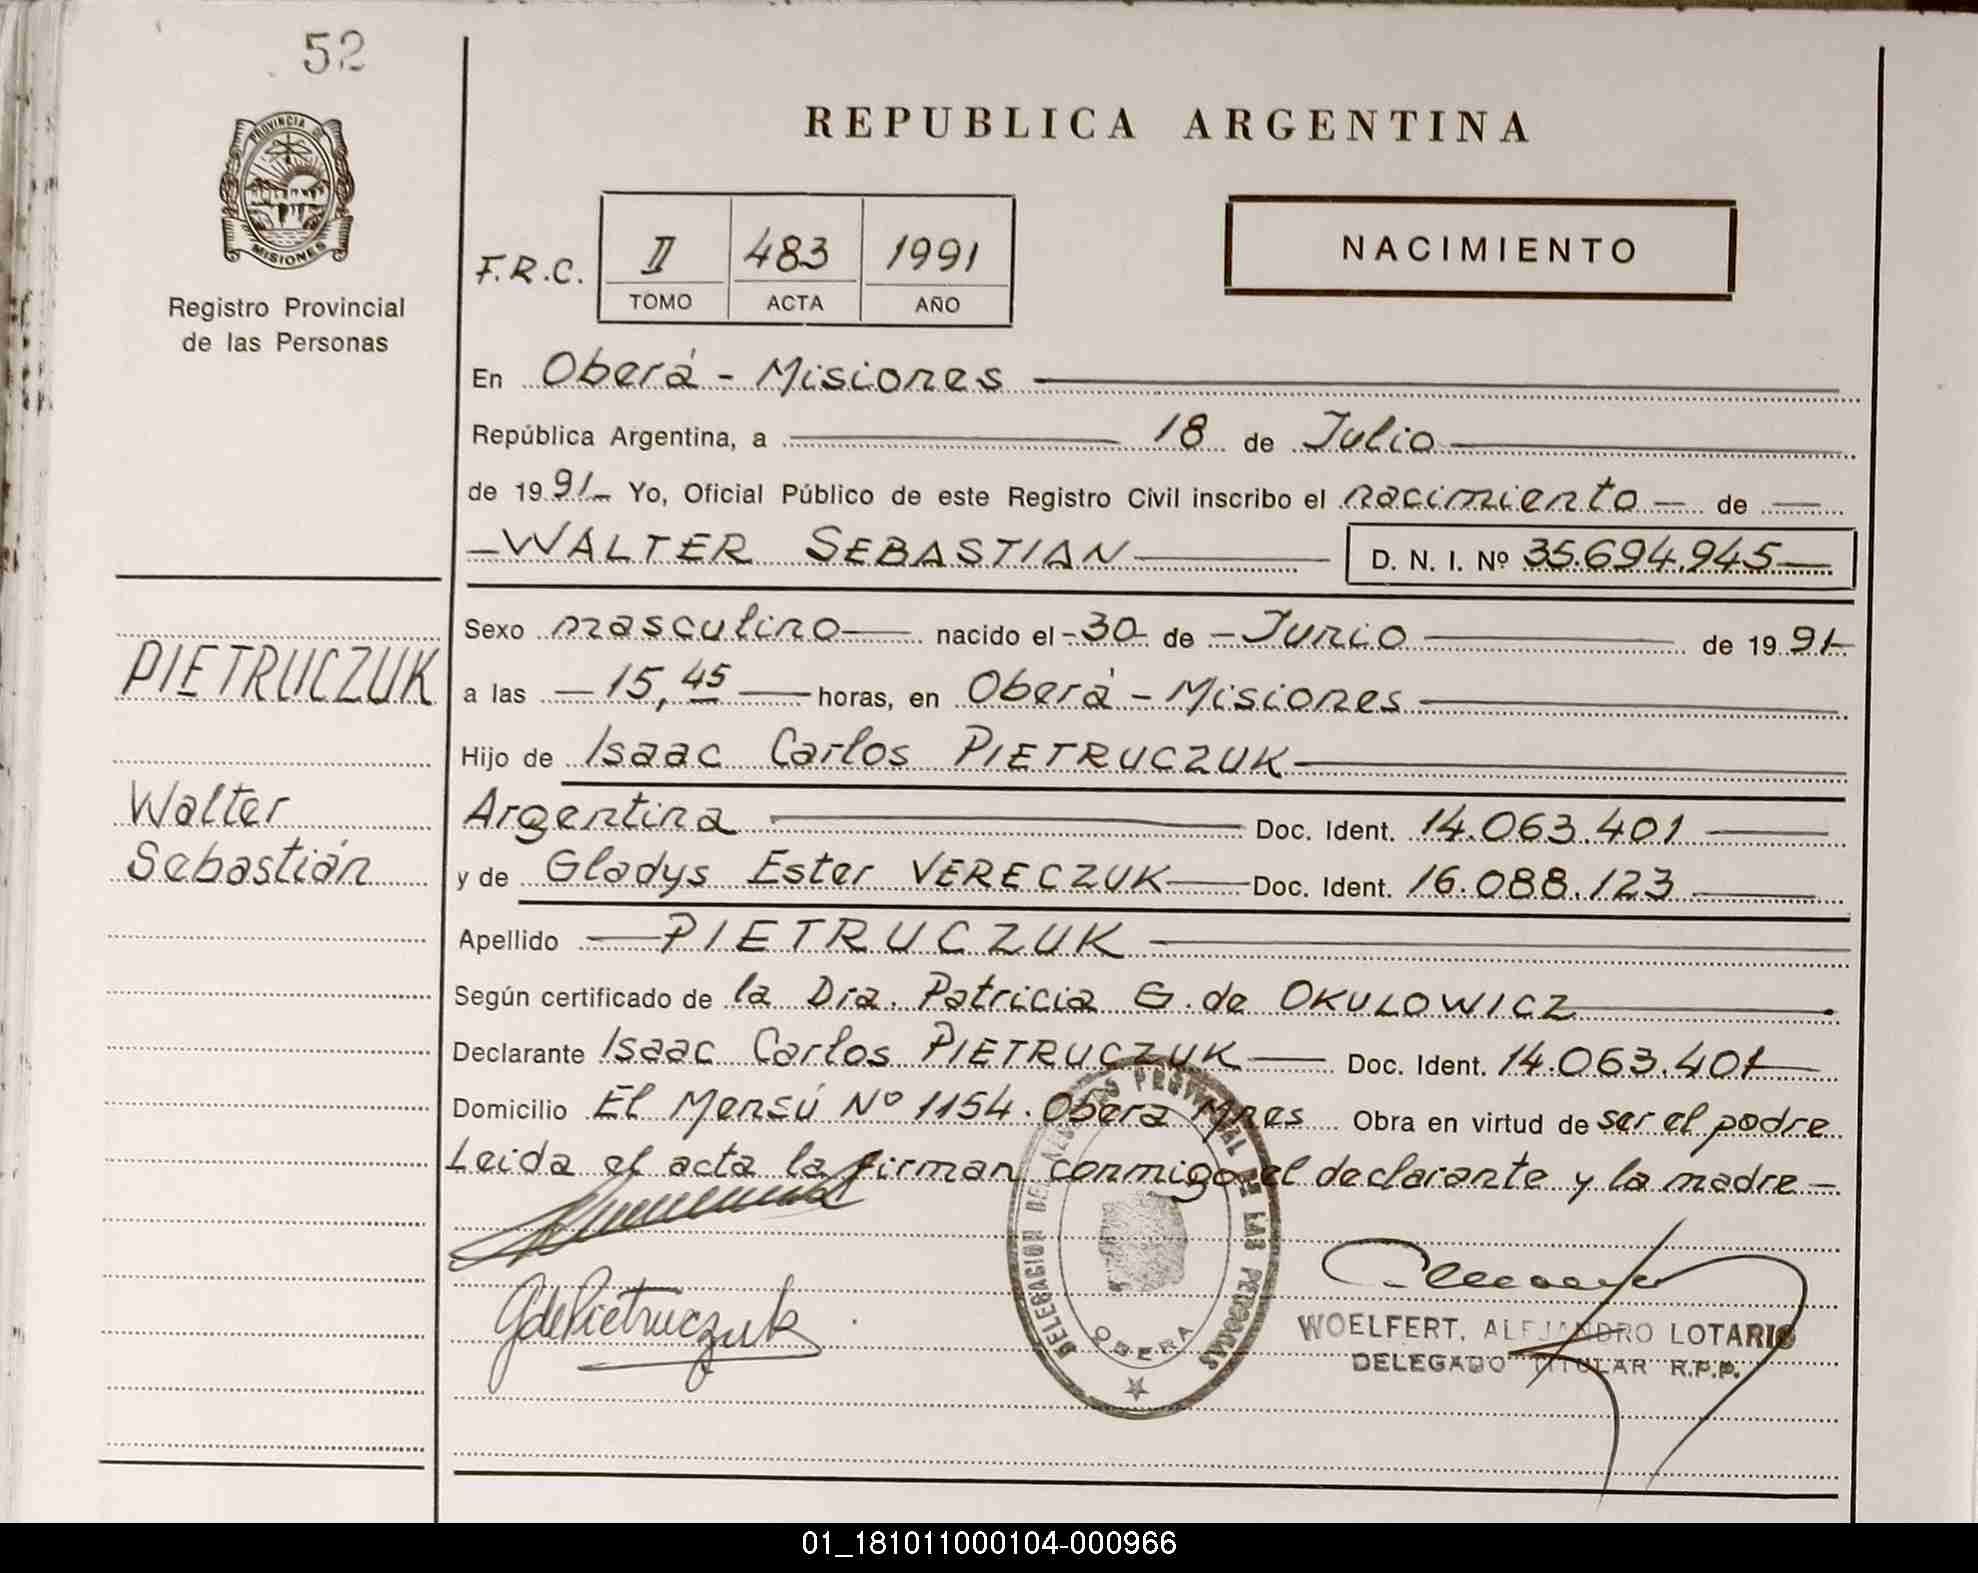 52
PROVINCIA DE
MISIONES
Registro Provincial
de las Personas
PIETRUCZUK
Walter
Sebastián
REPUBLICA ARGENTINA
F.R.C.
II 483 1991
TOMO ACTA AÑO
NACIMIENTO
En Oberá - Misiones
República Argentina, a 18 de Julio
de 1991- Yo, Oficial Público de este Registro Civil inscribo el nacimiento - de -
- WALTER SEBASTIAN - D. N. I. Nº 35.694.945 -
Sexo masculino - nacido el - 30 - de - Junio - de 1991-
a las - 15,45 - horas, en Oberá - Misiones
Hijo de Isaac Carlos PIETRUCZUK
Argentina - Doc. Ident. 14.063.401
y de Gladys Ester VERECZUK - Doc. Ident. 16.088.123
Apellido - PIETRUCZUK
Según certificado de la Dra. Patricia G. de OKULOWICZ
Declarante Isaac Carlos PIETRUCZUK - Doc. Ident. 14.063.401
Domicilio El Mensú Nº 1154. Oberá Mnes Obra en virtud de ser el padre
Leida el acta la firman conmigo el declarante y la madre -
GdePietruczuk
DELEGACION DEL REGISTRO PROVINCIAL DE LAS PERSONAS
OBERA
WOELFERT, ALEJANDRO LOTARIO
DELEGADO TITULAR R.P.P.
01_181011000104-000966